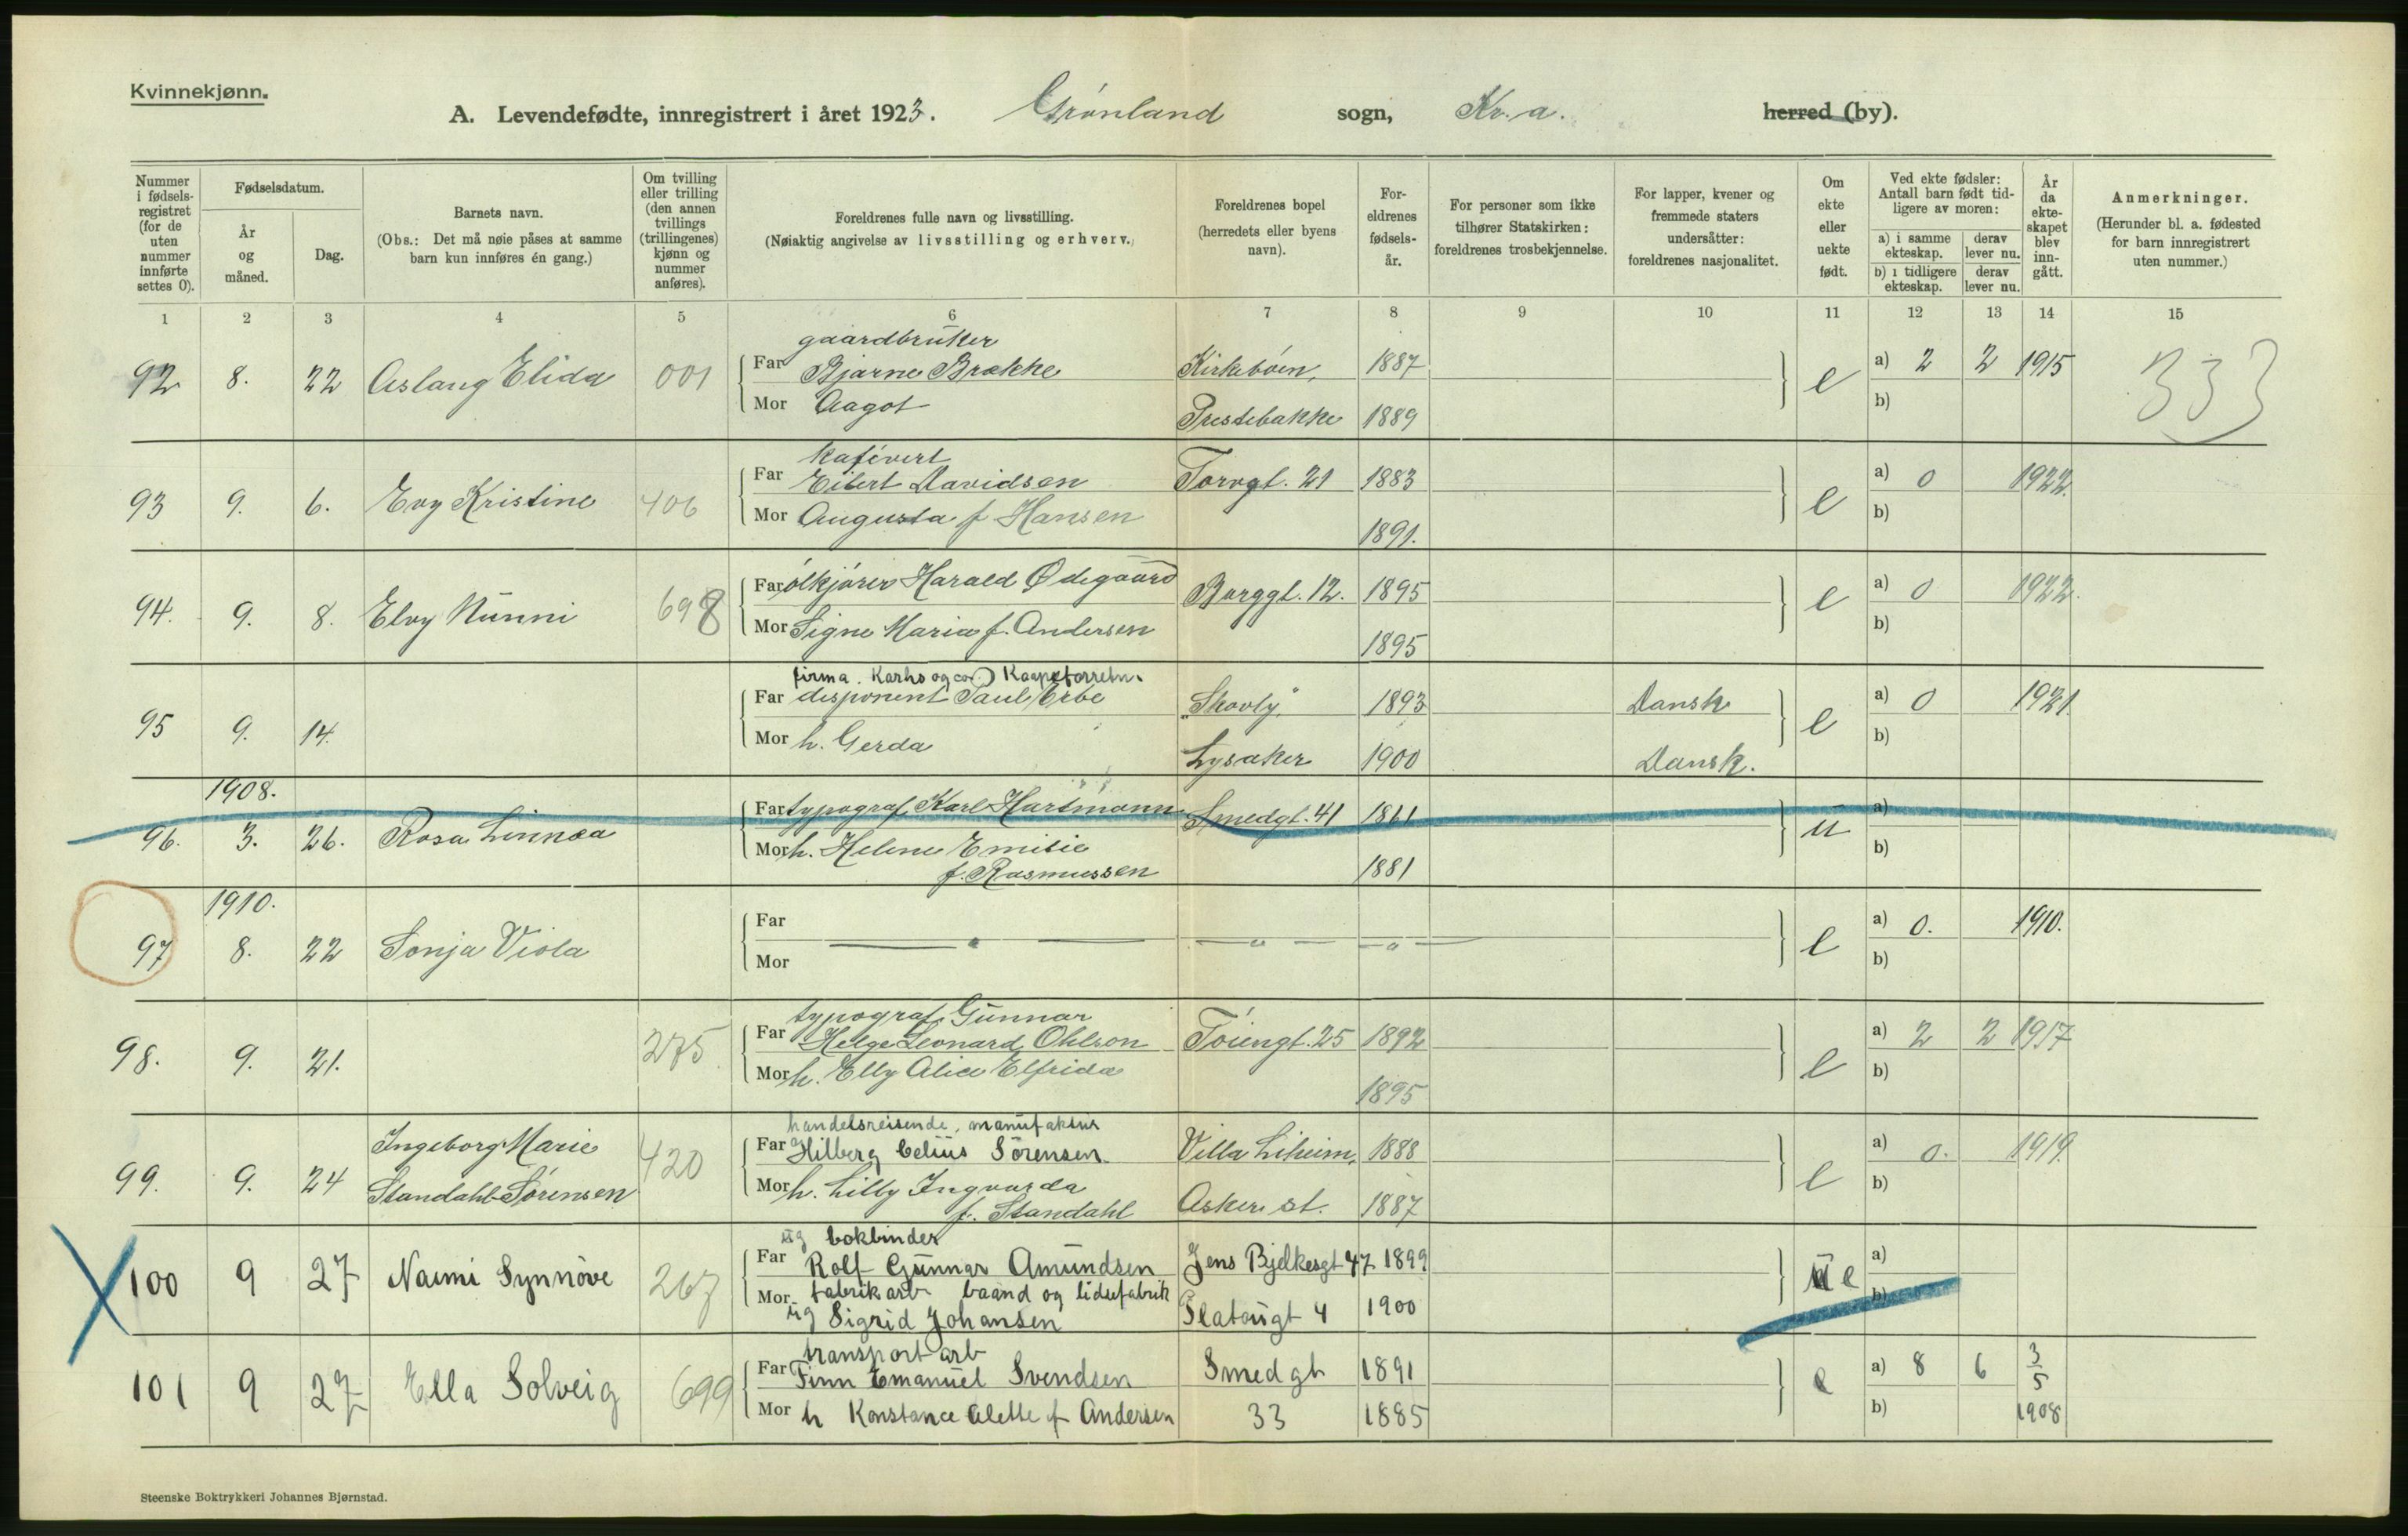 Kvinnekjønn.
A. Levendefødte, innregistrert i året 1923. Grønland sogn, Kr.a. herred (by).
Nummer i fødsels-registret (for de uten nummer innførte settes 0).
Fødselsdatum.
År og måned.
Dag.
Barnets navn.
(Obs.: Det må nøie påses at samme barn kun innføres én gang.)
Om tvilling eller trilling (den annen tvillings (trillingenes) kjønn og nummer anføres).
Foreldrenes fulle navn og livsstilling.
(Nøiaktig angivelse av livsstilling og erhverv.)
Foreldrenes bopel (herredets eller byens navn).
For-eldrenes fødsels-år.
For personer som ikke tilhører Statskirken: foreldrenes trosbekjennelse.
For lapper, kvener og fremmede staters undersåtter: foreldrenes nasjonalitet.
Om ekte eller uekte født.
Ved ekte fødsler: Antall barn født tid-ligere av moren:
a) i samme ekteskap. derav lever nu.
b) i tidligere ekteskap. derav lever nu.
År da ekte-skapet blev inn-gått.
Anmerkninger.
(Herunder bl. a. fødested for barn innregistrert uten nummer.)
1 2 3 4 5 6 7 8 9 10 11 12 13 14 15
gaardbruker
92 8. 22 Aslaug Elida 001 Far Bjarne Brække Kirkebøen, 1887 e a) 2 2 1915 333
Mor Aagot Prestebakke 1889 b)
kafévert
93 9. 6. Evy Kristine 406 Far Eilert Davidsen Torvgt. 21 1883 e a) 0 1922.
Mor Augusta f. Hansen 1891. b)
94. 9. 8. Elvy Nunni 698 Far ølkjører Harald Ødegaard Borggt. 12. 1895 e a) 0 1922.
Mor Signe Maria f. Andersen 1895 b)
firma. Karhs og co.) Kaapeforretn.
95 9. 14. Far disponent Paul Erbe "Skovly" 1893 Dansk e a) 0 1921.
Mor h. Gerda Lysaker 1900 Dansk. b)
1908.
96. 3. 26. Rosa Linnea Far typograf Karl Hartmann Smedgt. 41 1861 u a)
Mor h. Helene Emilie b)
f. Rasmussen 1881
1910.
97 8. 22 Sonja Viola Far — " — — " — — " — e a) 0. 1910.
Mor b)
typograf Gunnar
98. 9. 21. 275 Far Helge Leonard Ohlson Tøiengt. 25 1892 e a) 2 2 1917
Mor h. Elly Alice Elfrida 1895 b)
handelsreisende, manufaktur
99. 9. 24 Ingeborg Marie 420 Far Hilberg Celius Sørensen Villa Liheim, 1888 e a) 0. 1919.
Standahl-Sørensen Mor h. Lilly Ingvarda b)
f. Standahl Asker st. 1887
ug bokbinder
100 9 27 Naemi Synnøve 267 Far Rolf Gunnar Amundsen Jens Bjelkesgt 47 1899 ue a)
Mor fabrikarb baand og lidsefabrik b)
ug Sigrid Johansen Platougt 4 1900
transport arb
101 9 27 Ella Solveig 699 Far Finn Emanuel Svendsen Smedgt 1891 e a) 8 6 3/5
Mor h Konstance Alette f Andersen 33 1885 b) 1908
Steenske Boktrykkeri Johannes Bjørnstad.